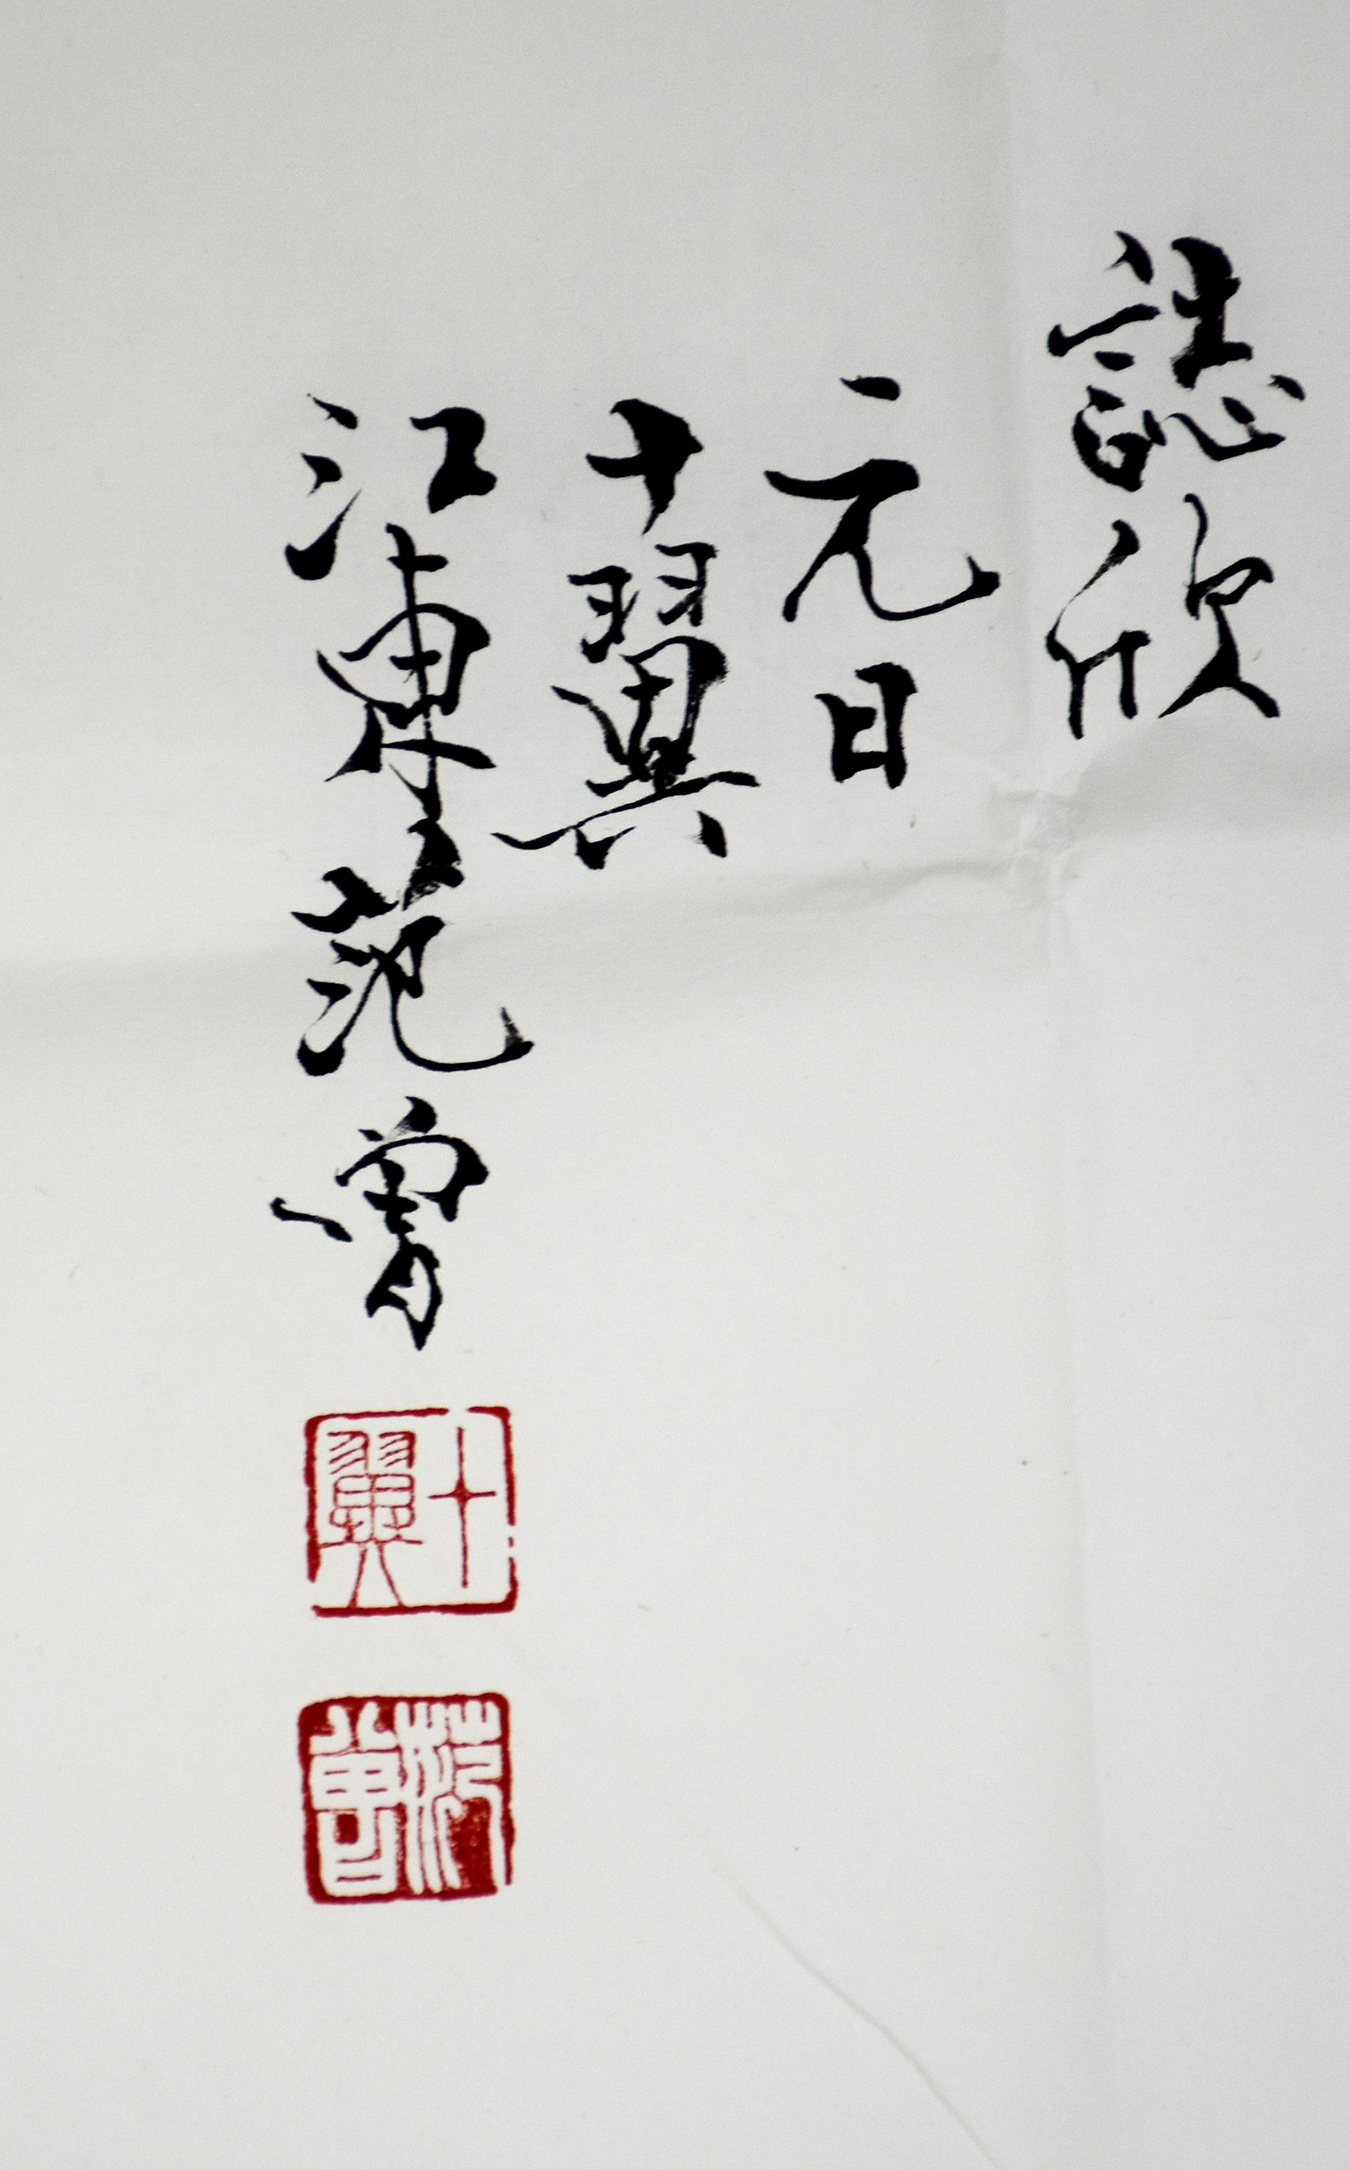 誌欣
元日
十翼
江東范曾
十翼
范曾